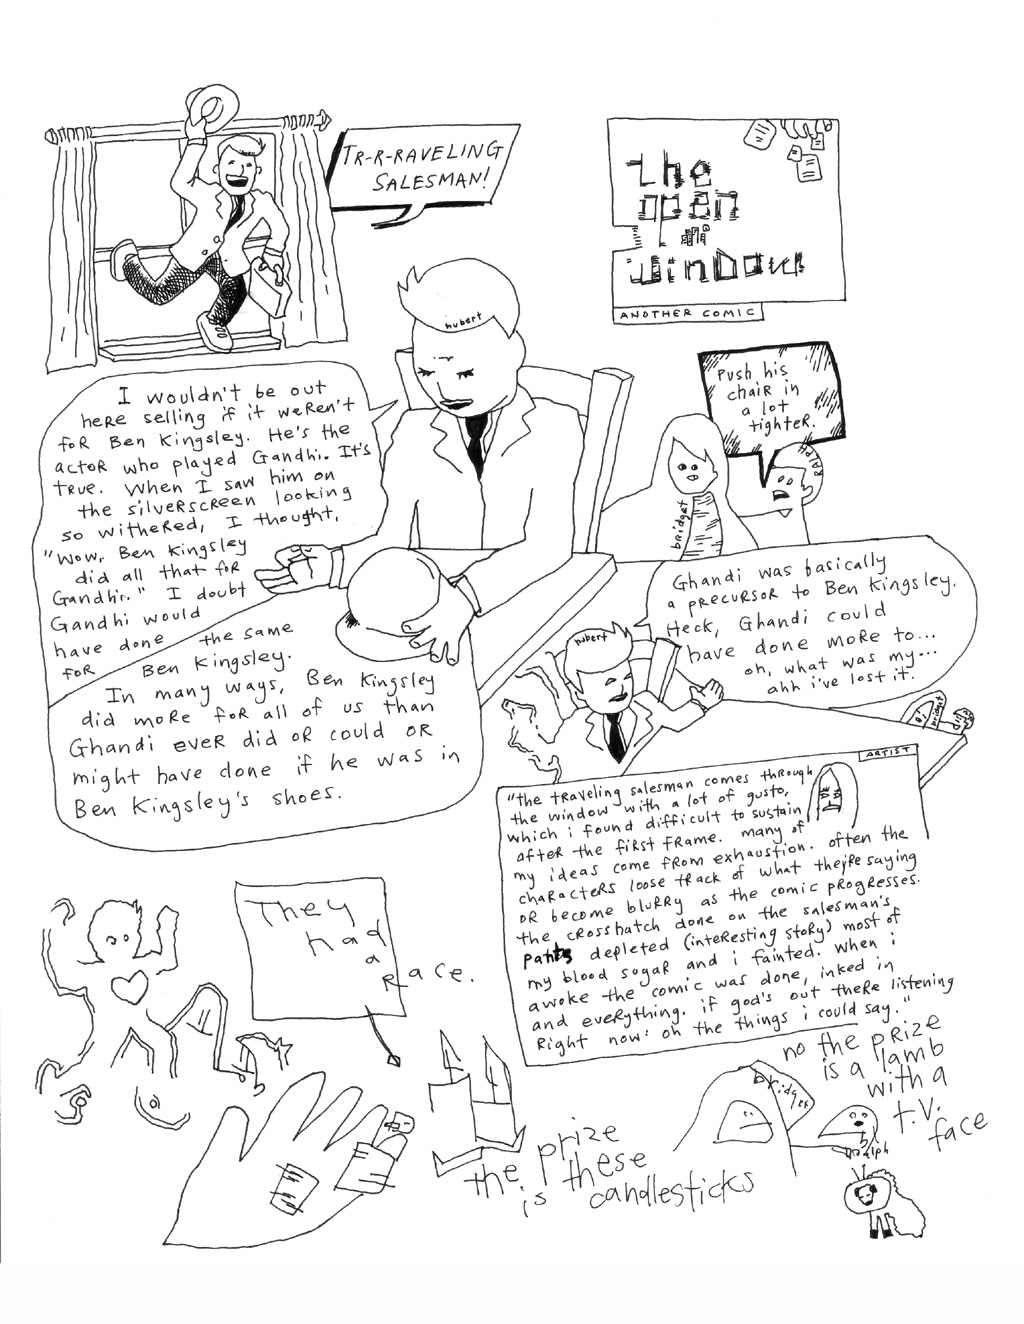 TR-R-RAVELING
SALESMAN!
the
open
window
ANOTHER COMIC
hubert
I wouldn't be out
here selling if it weren't
for Ben Kingsley. He's the
actor who played Gandhi. It's
true. When I saw him on
the silverscreen looking
so withered, I thought,
"Wow, Ben Kingsley
did all that for
Gandhi." I doubt
Gandhi would
have done the same
for Ben Kingsley.
In many ways, Ben Kingsley
did more for all of us than
Ghandi ever did or could or
might have done if he was in
Ben Kingsley's shoes.
Push his
chair in
a lot
tighter.
RALPH
bridget
Ghandi was basically
a precursor to Ben Kingsley.
Heck, Ghandi could
have done more to...
oh, what was my...
ahh i've lost it.
hubert
bridget
ARTIST
"the traveling salesman comes through
the window with a lot of gusto,
which i found difficult to sustain
after the first frame. many of
my ideas come from exhaustion. often the
characters loose track of what they're saying
or become blurry as the comic progresses.
the crosshatch done on the salesman's
pants depleted (interesting story) most of
my blood sugar and i fainted. when i
awoke the comic was done, inked in
and everything. if god's out there listening
right now: oh the things i could say."
They
had
a
Race.
the prize
is these
candlesticks
bridget
no the prize
is a lamb
with a
t.v.
face
Ralph